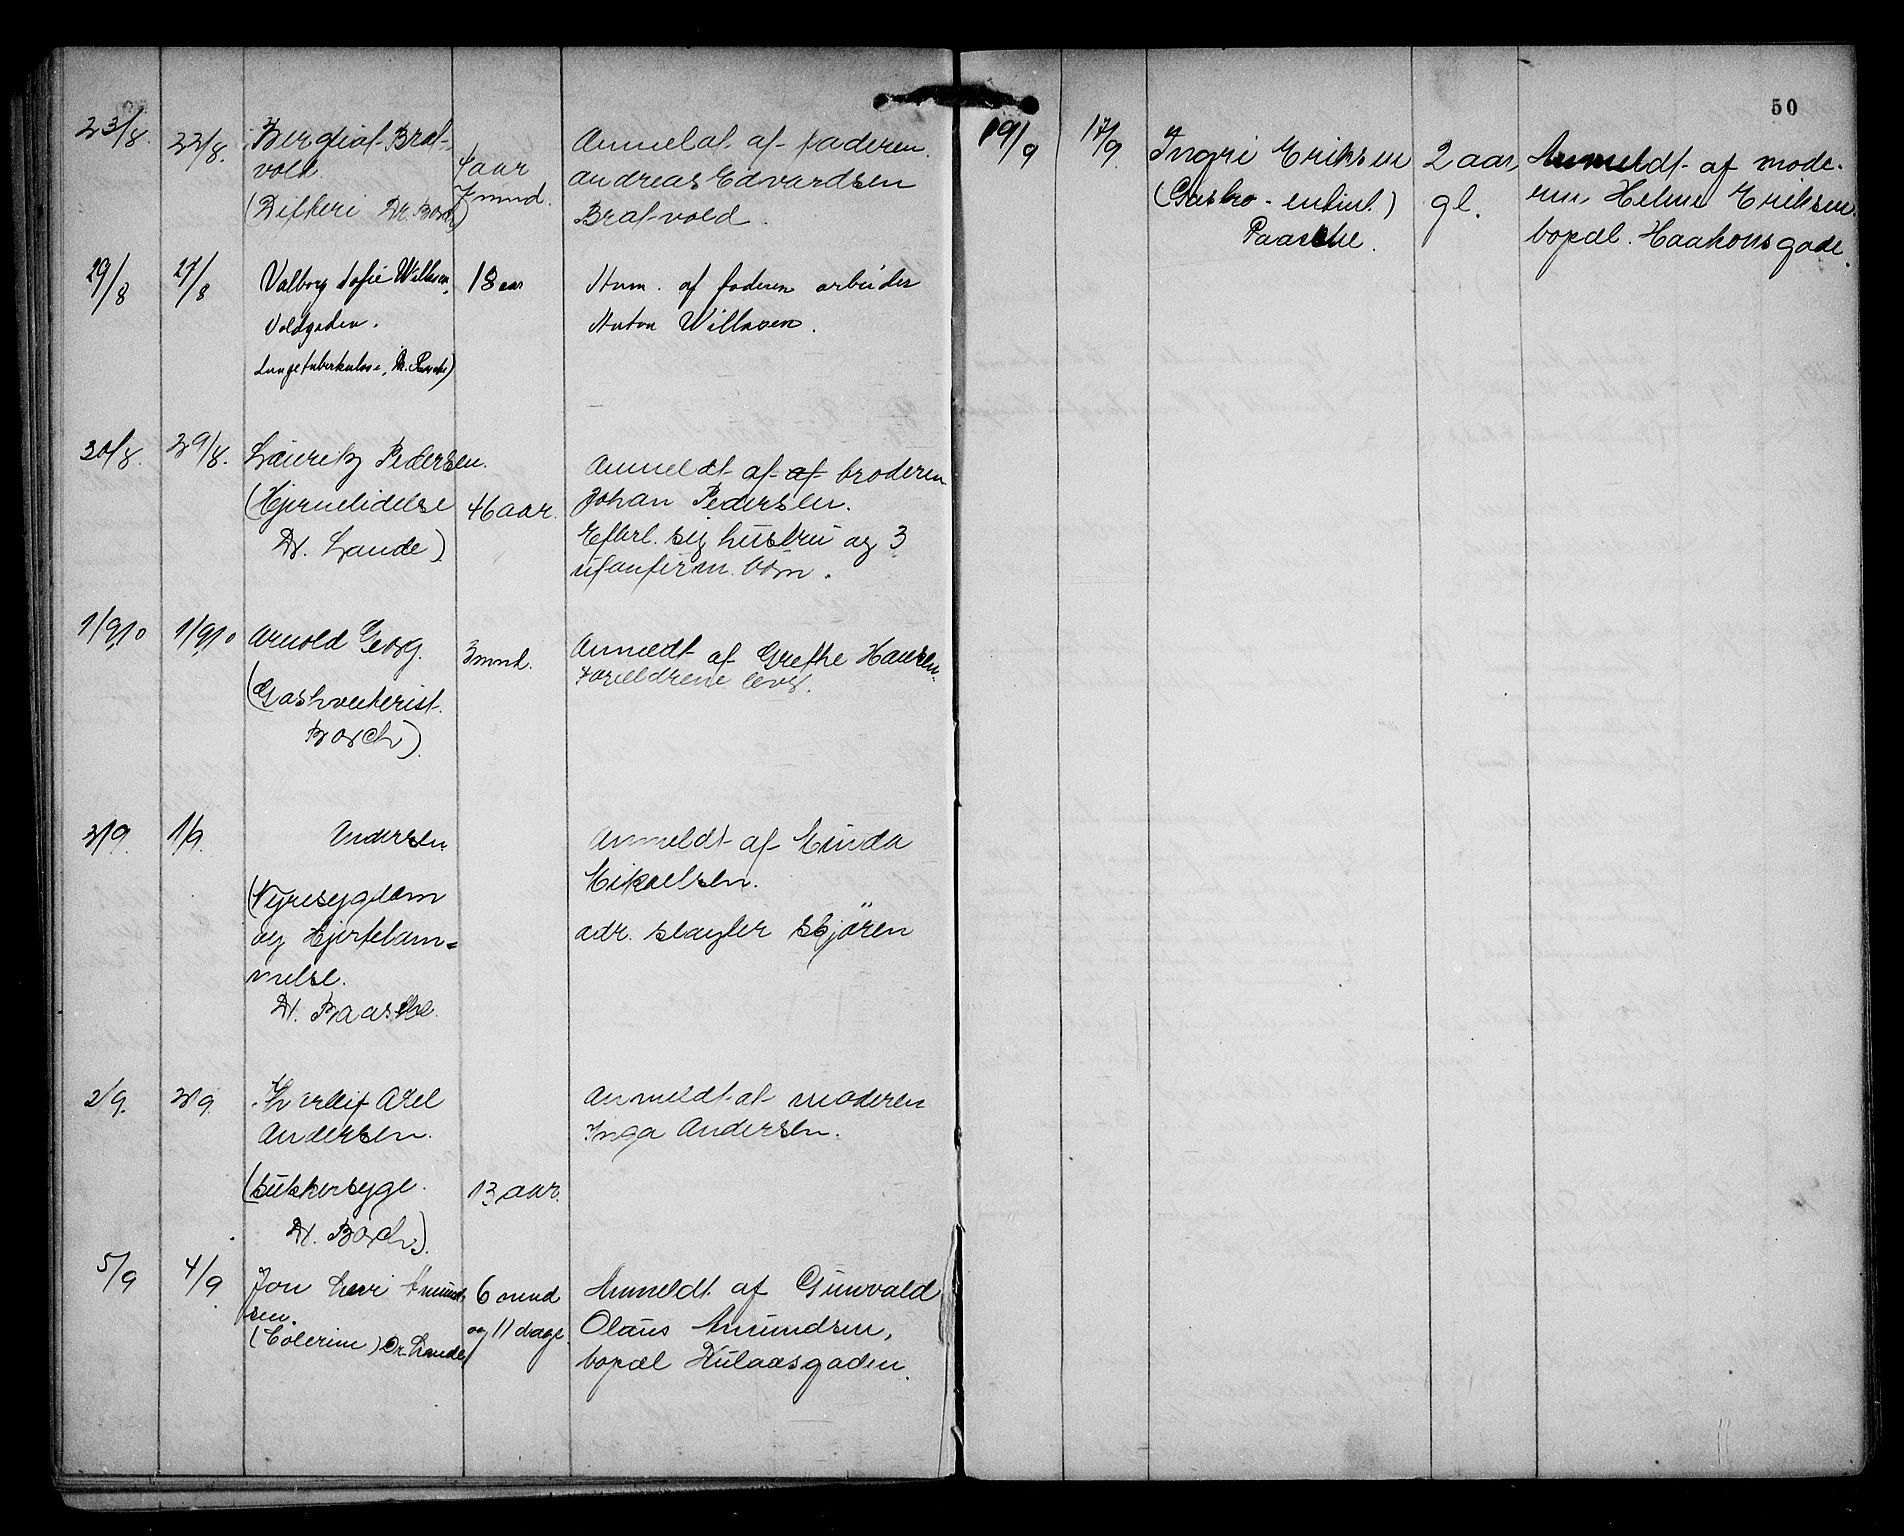 50
23/8. 22/8. Bergliot Brat-
vold.
(Difteri Dr. Borch)
4 aar
7 mnd.
Anmeldt af faderen
Andreas Edvardsen
Bratvold.
29/8 27/8 Valborg Sofie Willasen,
Voldgaden.
Lungetuberkulose, Dr. Paasche)
18 aar
Anm. af faderen arbeider
Anton Willasen.
30/8. 29/8. Lauritz Pedersen.
(Hjernelidelse
Dr. Lande)
46 aar.
Anmeldt af af broderen
Johan Pedersen.
Efterl. sig hustru og 3
ukonfirm. børn.
1/9 10 1/9 10 Arnold Georg.
Borch)
3 mnd.
Anmeldt af Grethe Hansen.
Forældrene lever.
2/9. 1/9. Andersen
(Nyresygdom
og Hjertelam-
melse.
Dr. Paasche.
Anmeldt af
Mikaelsen.
adr. slagter Skjören
2/9. 2/9 Axel
Andersen.
(Sukkersyge.
Dr. Borch).
13 aar.
Anmeldt af moderen
Inga Andersen.
5/9 4/9 Jon Levi Amund-
sen.
(Colerine) Dr. Lande
6 mnd
og 11 dage.
Anmeldt af Gunvald
Olaus Amundsen,
bopæl Kulaasgaden.
19/9 17/9 Ingri Eriksen
(Gastro-enterit.)
Paasche.
2 aar,
gl.
Anmeldt af mode-
ren Helene Eriksen.
bopæl. Haakonsgade.